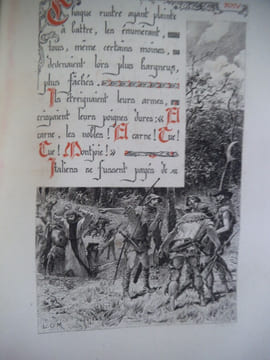 Chaque rustre ayant plainte
à battre, les énumérant,
tous, même certains moines,
devenaient lors plus hargneux,
plus fâchés.
Ils étreignaient leurs armes,
crispaient leurs poignes dures: «
carne, les nobles! El carne! Tue!
Tue! Montjoie!»
Italiens se fussent payés de
L.O.M.